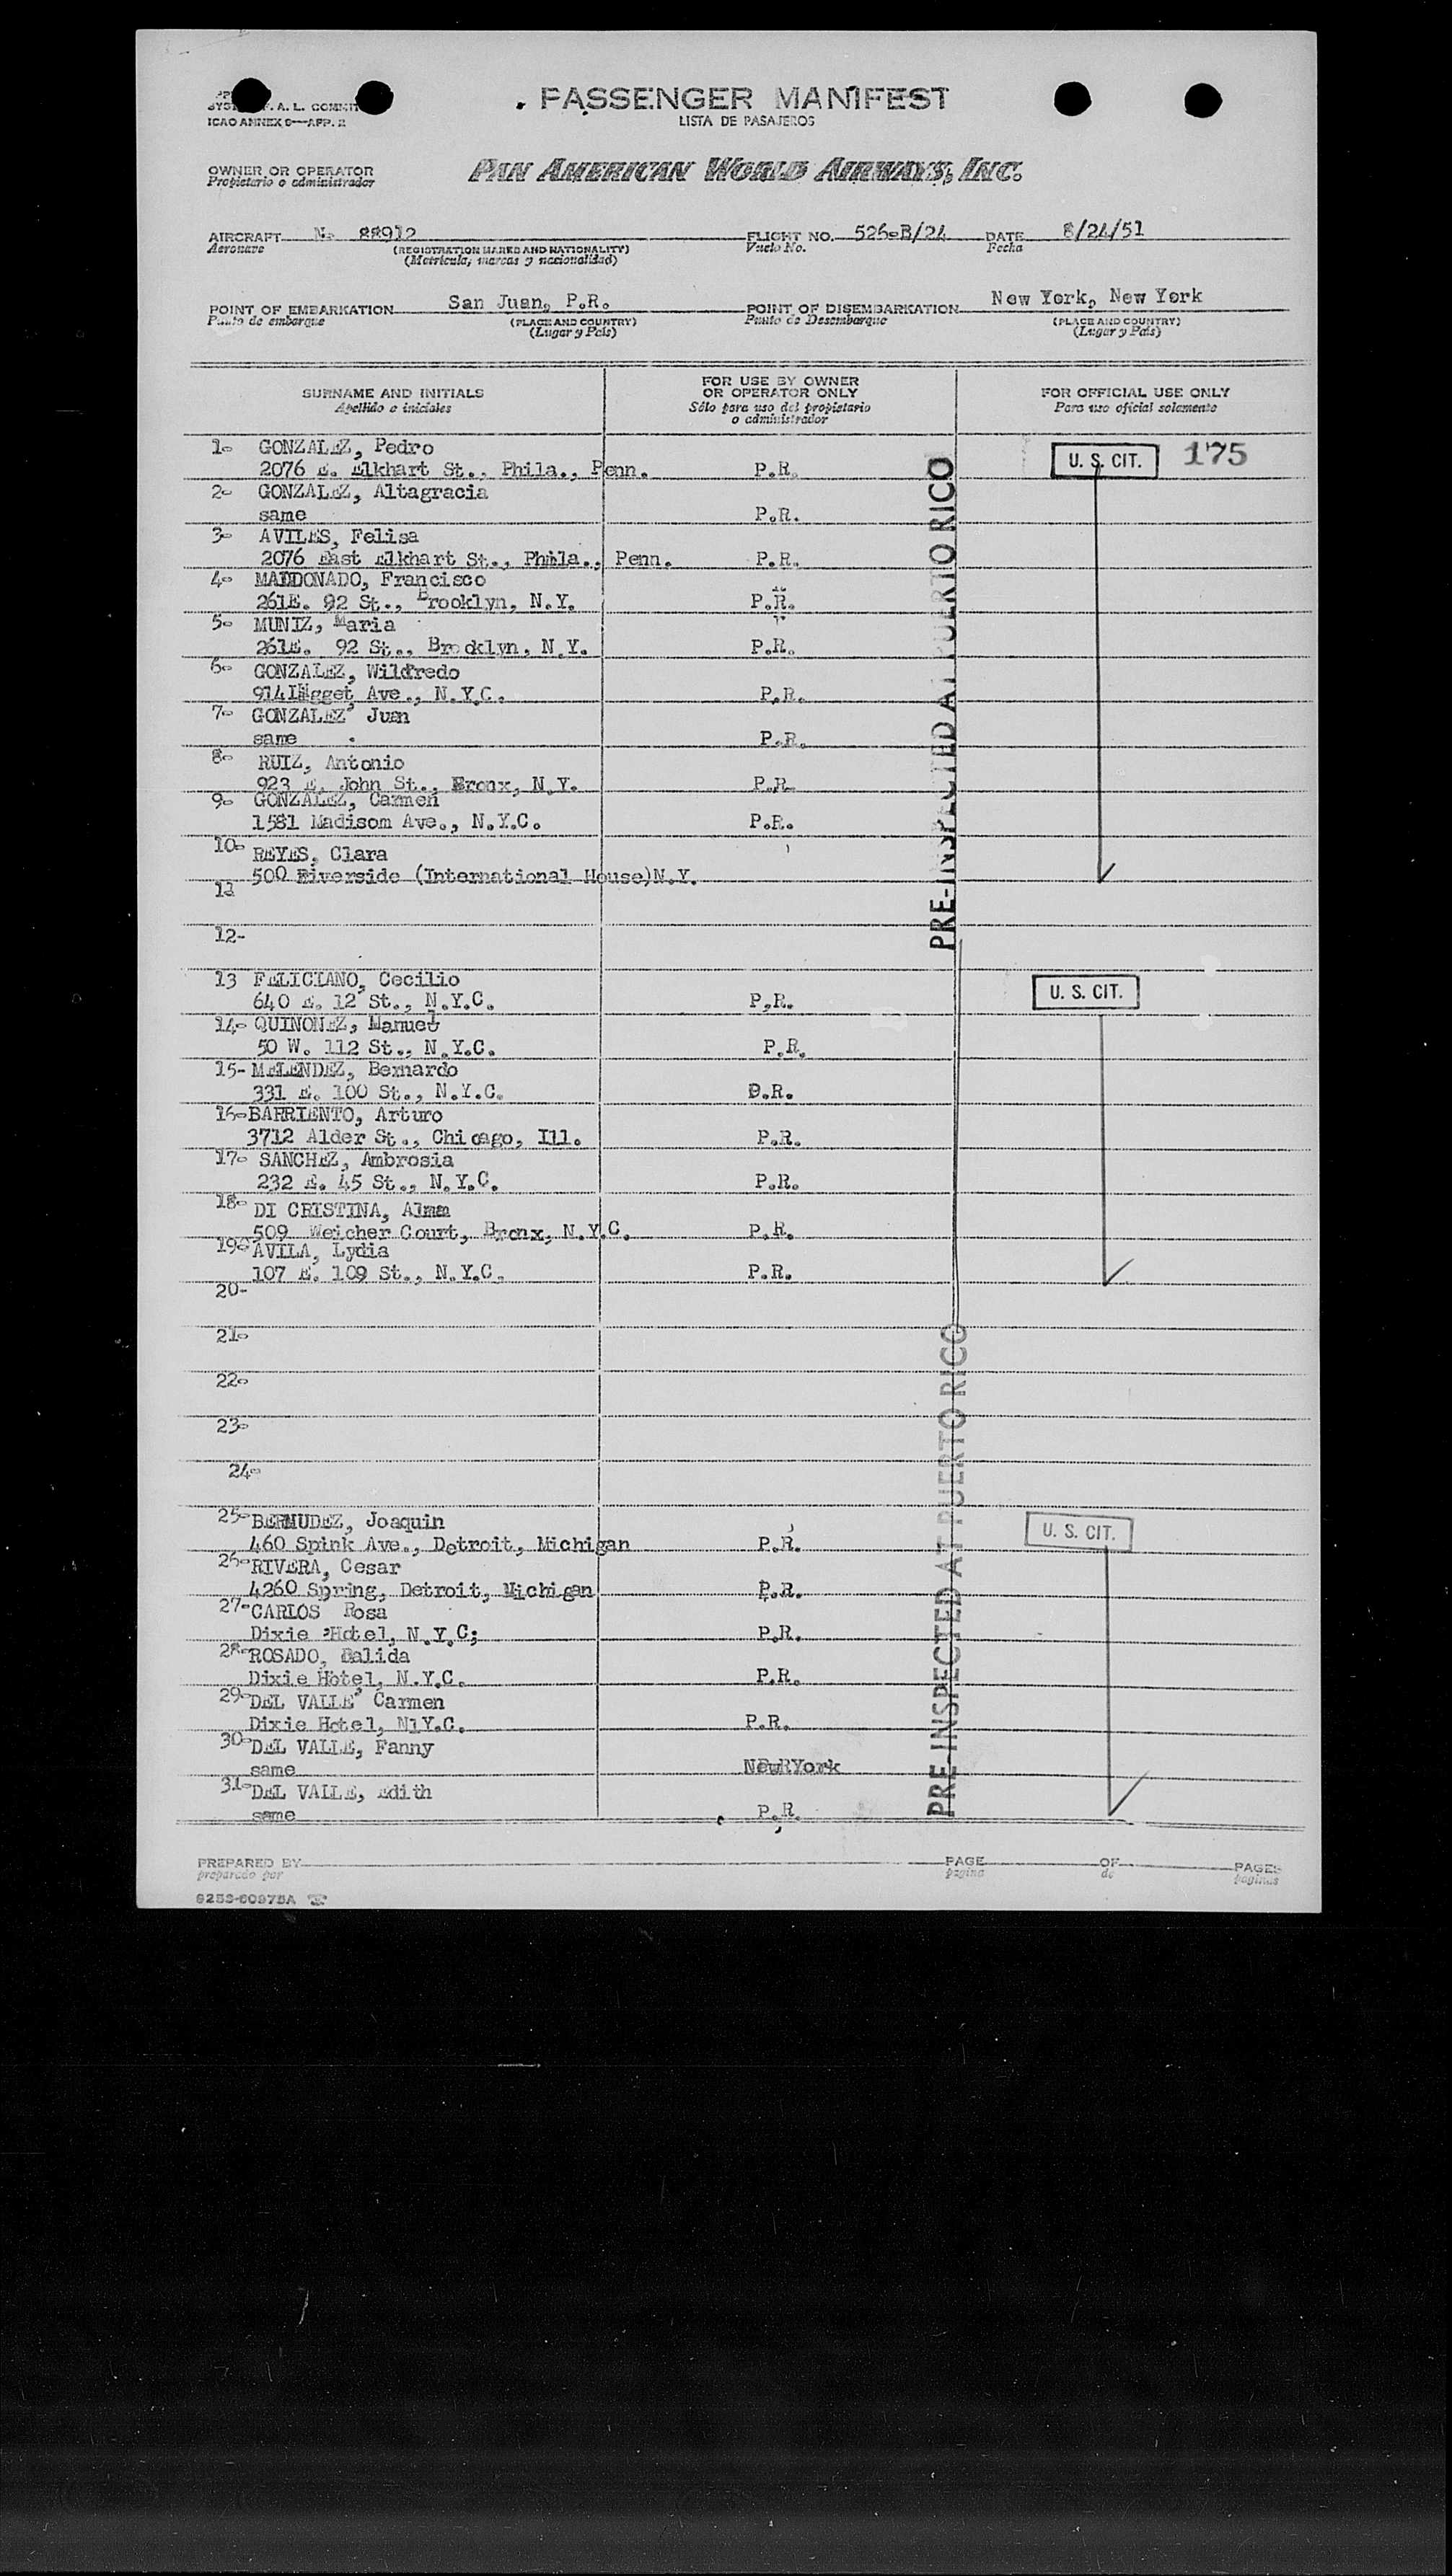 SYS F. A. L. COMMIT
ICAO ANNEX 9—APP. 2
PASSENGER MANIFEST
LISTA DE PASAJEROS
OWNER OR OPERATOR
Propietario o administrador
PAN AMERICAN WORLD AIRWAYS, INC.
AIRCRAFT N- 88912 FLIGHT NO. 526-B/24 DATE 8/24/51
Aeronave (REGISTRATION MARKS AND NATIONALITY) Vuelo No. Fecha
(Matrícula, marcas y nacionalidad)
POINT OF EMBARKATION San Juan, P.R. POINT OF DISEMBARKATION New York, New York
Punto de embarque (PLACE AND COUNTRY) Punto de Desembarque (PLACE AND COUNTRY)
(Lugar y País) (Lugar y País)
SURNAME AND INITIALS FOR USE BY OWNER OR OPERATOR ONLY FOR OFFICIAL USE ONLY
Apellido e iniciales Sólo para uso del propietario o administrador Para uso oficial solamente
1- GONZALEZ, Pedro
2076 E. Elkhart St., Phila., Penn. P.R. U. S. CIT. 175
2- GONZALEZ, Altagracia
same P.R.
3- AVILES, Felisa
2076 East Elkhart St., Phila., Penn. P.R.
4- MALDONADO, Francisco
261E. 92 St., Brooklyn, N.Y. P.R.
5- MUNIZ, Maria
261E. 92 St., Brooklyn, N.Y. P.R.
6- GONZALEZ, Wildredo
914 Ave., N.Y.C. P.R.
7- GONZALEZ, Juan
same P.R.
8- RUIZ, Antonio
923 E. John St., Bronx, N.Y. P.R.
9- GONZALEZ, Carmen
1581 Madisom Ave., N.Y.C. P.R.
10- REYES, Clara
500 Riverside (International House)N.Y.
11
12-
PRE-INSPECTED AT PUERTO RICO
13 FELICIANO, Cecilio
640 E. 12 St., N.Y.C. P.R. U. S. CIT.
14- QUINONEZ, Manuel
50 W. 112 St., N.Y.C. P.R.
15- MELENDEZ, Bernardo
331 E. 100 St., N.Y.C. P.R.
16- BARRIENTO, Arturo
3712 Alder St., Chicago, Ill. P.R.
17- SANCHEZ, Ambrosia
232 E. 45 St., N.Y.C. P.R.
18- DI CRISTINA, Alma
509 Weicher Court, Bronx, N.Y.C. P.R.
19- AVILA, Lydia
107 E. 109 St., N.Y.C. P.R.
20-
21-
22-
23-
24-
25- BERMUDEZ, Joaquin
460 Spink Ave., Detroit, Michigan P.R. U. S. CIT.
26- RIVERA, Cesar
4260 Spring, Detroit, Michigan P.R.
27- CARLOS Rosa
Dixie Hotel, N.Y.C; P.R.
28- ROSADO, Dalida
Dixie Hotel, N.Y.C. P.R.
29- DEL VALLE, Carmen
Dixie Hotel, N1Y.C. P.R.
30- DEL VALLE, Fanny
same New York
31- DEL VALLE, Edith
same P.R.
PRE-INSPECTED AT PUERTO RICO
PREPARED BY PAGE OF PAGES
preparado por página de páginas